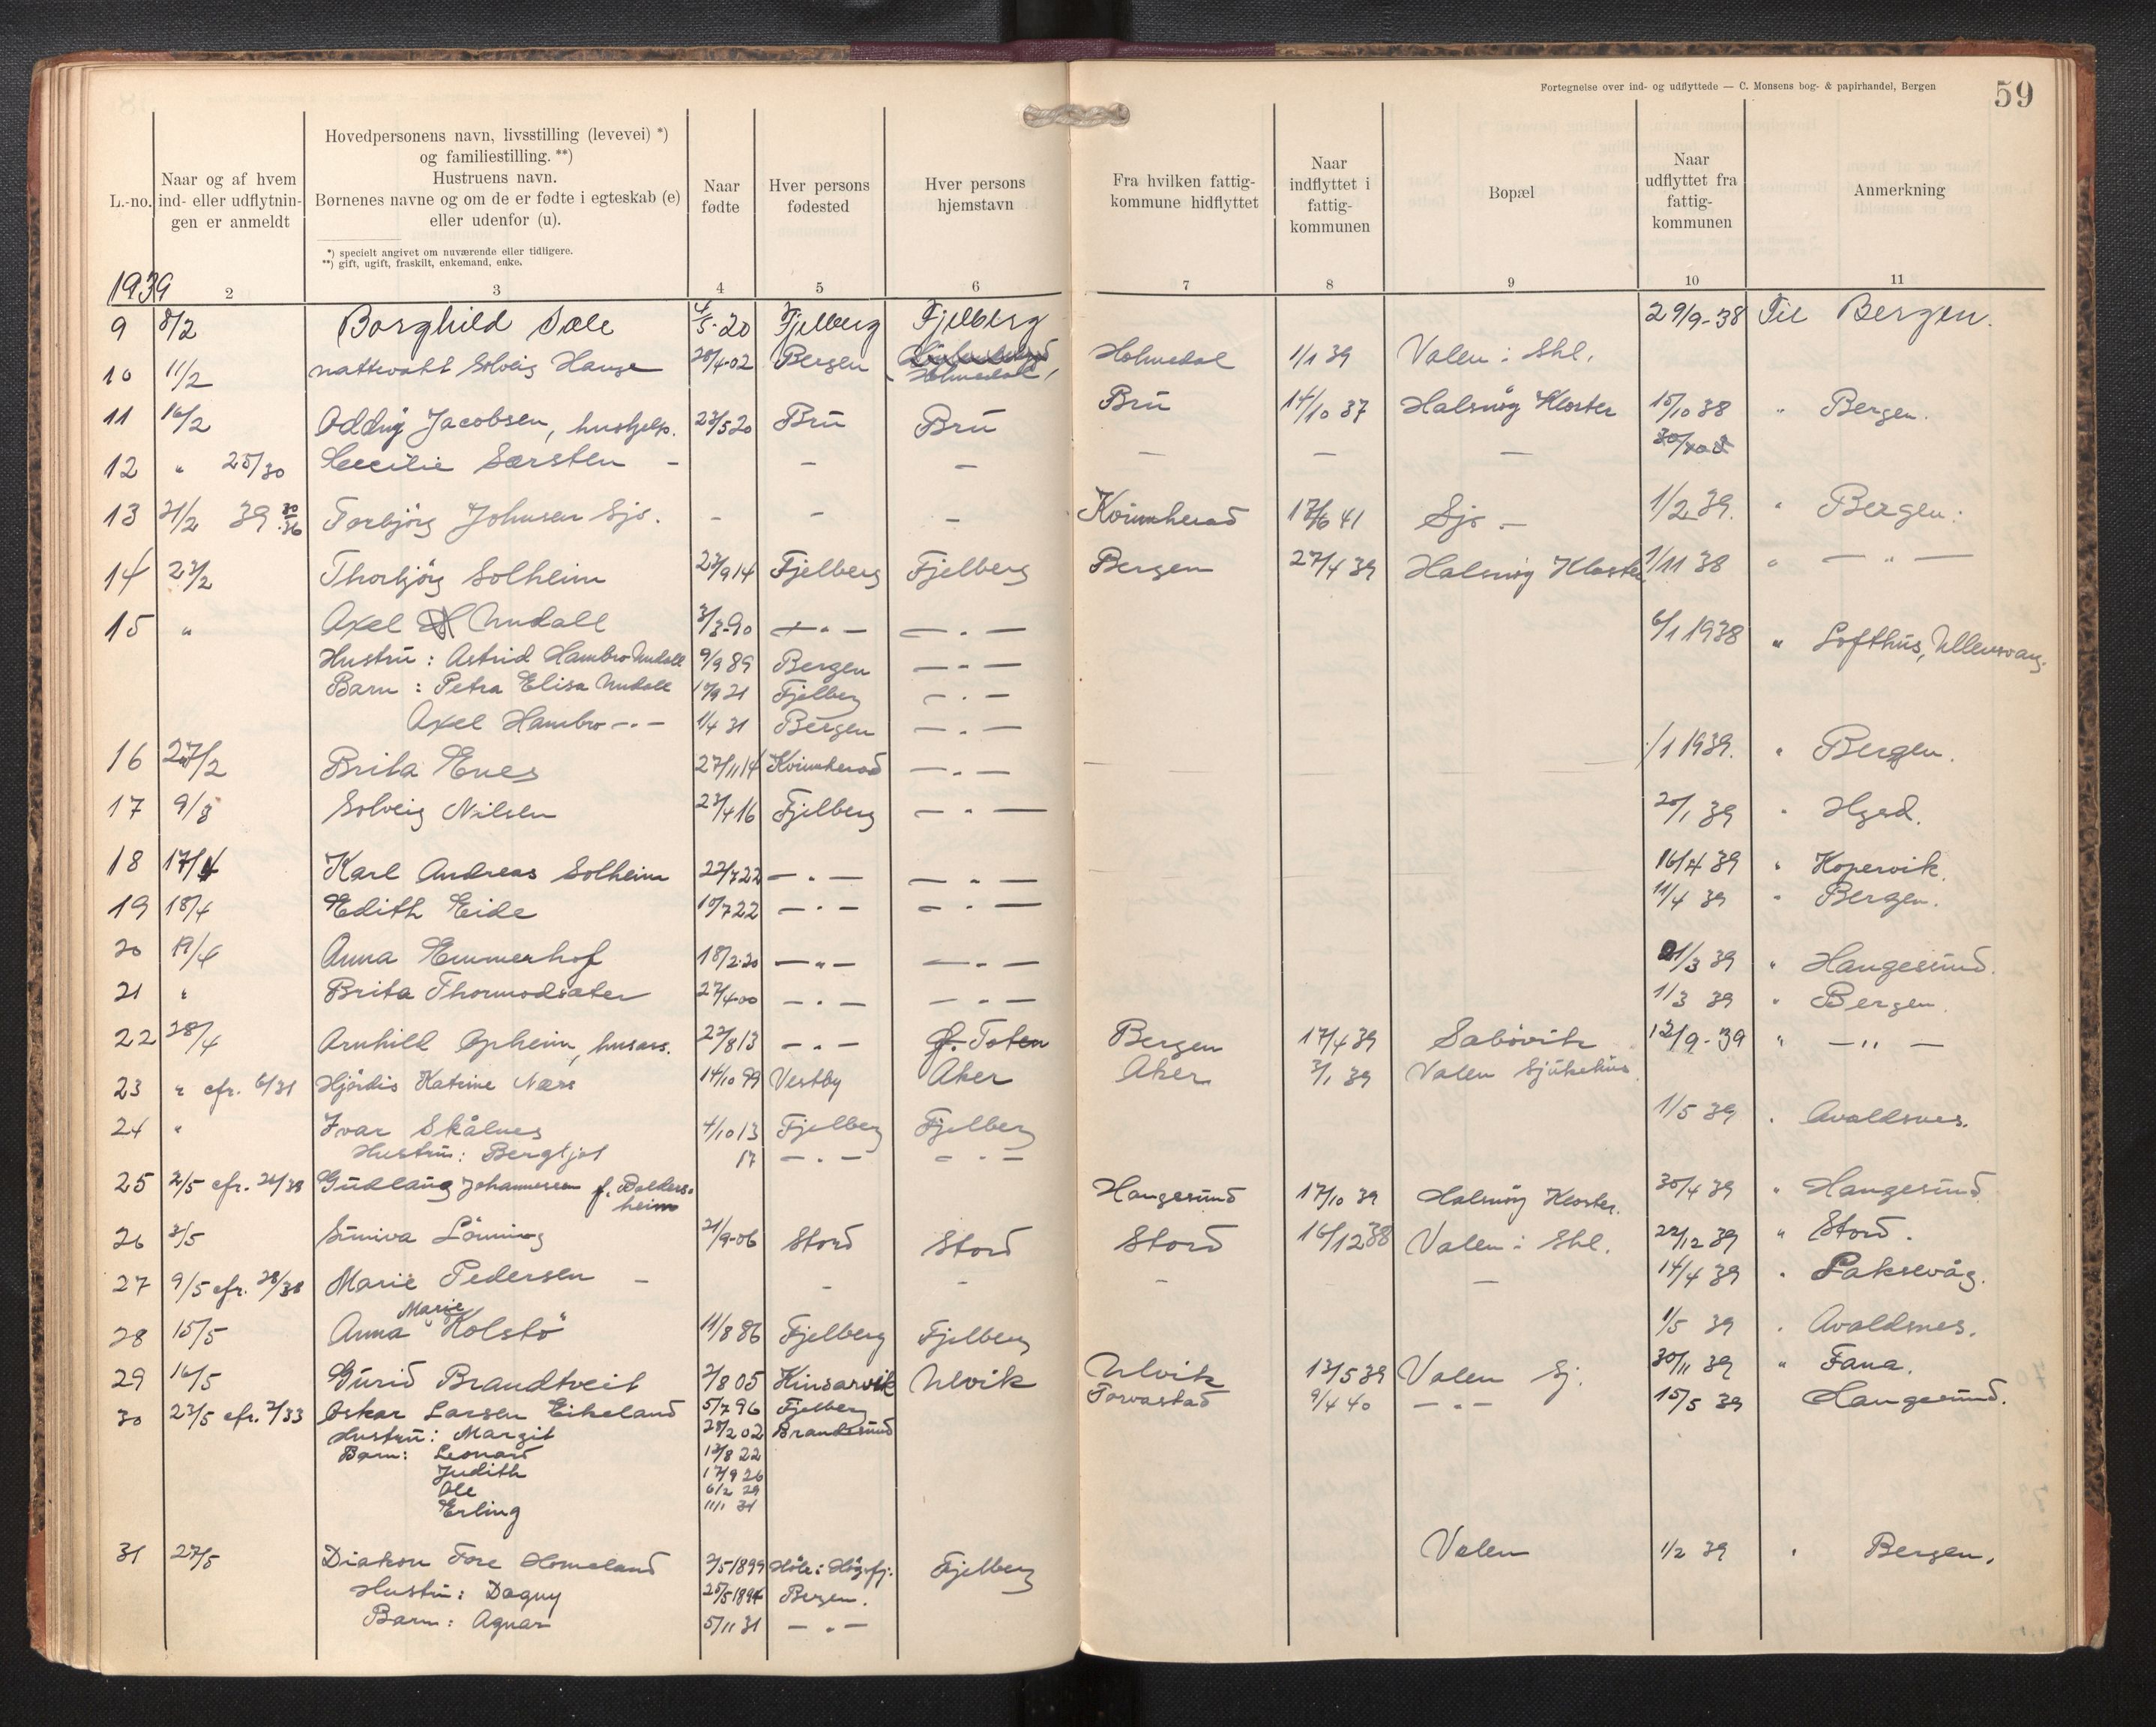 Fortegnelse over ind- og udflyttede — C. Monsens bog- & papirhandel, Bergen
59
L.-no.
Naar og af hvem
ind- eller udflytnin-
gen er anmeldt
Hovedpersonens navn, livsstilling (levevei) *)
og familiestilling. **)
Hustruens navn.
Børnenes navne og om de er fødte i egteskab (e)
eller udenfor (u).
*) specielt angivet om nuværende eller tidligere.
**) gift, ugift, fraskilt, enkemand, enke.
Naar
fødte
Hver persons
fødested
Hver persons
hjemstavn
Fra hvilken fattig-
kommune hidflyttet
Naar
indflyttet i
fattig-
kommunen
Bopæl
Naar
udflyttet fra
fattig-
kommunen
Anmerkning
1939 2 3 4 5 6 7 8 9 10 11
9 8/2 Borghild Sæle 4/5-20 Fjelberg Fjelberg 29/9-38 Til Bergen.
10 11/2 Solveig Hauge 20/4-02 Bergen Holmedal Holmedal 1/1 39 Valen i Shl.
11 16/2 Oddny Jacobsen, hushjelp. 23/5 20 Bru Bru Bru 14/10 37 Halsnöy Kloster 15/10 38 " Bergen.
12 " 25/30 Cecilie Sørsten - - - - - -
13 21/2 39 Torbjörg Johnsen Sjo. - - - Kvinnherad 41 Sjo - 1/2 39. " Bergen.
14 23/2 Thorbjörg Solheim 23/9 14 Fjelberg Fjelberg Bergen 27/4 39 Halsnöy Kloster 1/11 38 " — " —
15 " Axel Undall 3/3-90 — " — — " — 6/1 1938 " Lofthus, Ullensvang.
Hustru : Astrid Hambro Undall 9/9 89 Bergen — " —
Barn : Petra Elisa Undall 21 Fjelberg — " —
Axel Hambro — " — 1/4 31 Bergen — " —
16 27/2 Brita Enes 27/11 14 Kvinnherad — " — /1 1939. " Bergen.
17 9/3 Solveig Nilsen 23/4 16 Fjelberg — " — 20/1 39 " Hgsd.
18 17/4 Karl Andreas Solheim 22/7 22 — " — — " — 16/4 39 " Kopervik.
19 18/4 Edith Eide 10/7 22 — " — — " — 11/4 39 " Bergen.
20 19/4 Anna Emmerhof 18/2-20 — " — — " — 21/3 39 " Haugesund.
21 " Brita Thormodsæter 27/4-00 — " — — " — 1/3 39 " Bergen
22 28/4 Arnhild Opheim, husass. 22/8 13 — " — Ø. Toten Bergen 17/4 39 Sæbövik 12/9-39 " — " —
23 " cfr. 6/31 Hjördis Katrine Næss 14/10 99 Vestby Aker Aker 3/1 39 Valen Sjukehus.
24 " Ivar Skålnes 4/10 13 Fjelberg Fjelberg 1/5 39 " Avaldsnes.
Hustru: Bergljot 17 — " — — " —
25 2/5 cfr. Gudlaug Johannessen f. Balders-
heim Haugesund 17/10 39 Halsnöy Kloster. 30/4 39 " Haugesund
26 3/5 Suniva Lönning 21/9-06 Stord Stord Stord 16/12 38 Valen i Shl. 22/12 39 " Stord.
27 9/5 cfr. 28/38 Marie Pedersen - - - - - 14/4 39 " Laksevåg.
28 15/5 Anna Marie Kolstö 11/8 86 Fjelberg Fjelberg 1/5 39 " Avaldsnes.
29 16/5 Gurid Brandtveit 2/8 05 Kinsarvik Ulvik Ulvik 13/5 39 Valen Sj. 30/11 39 " Fana.
30 23/5 cfr. 2/33 Oskar Larsen Eikeland 5/7 96 Fjelberg Torvastad 9/4 40 — " — 15/5 39 Haugesund.
Hustru: Margit 28/2 02 Brandesund
Barn: Leonard 13/8 22
Judith 17/9 26
Ole 6/2 29
Erling 11/1 31
31 27/5 Diakon Tore Homeland 2/5 1899 Höle i Högsfj. Fjelberg Valen 1/2 39 " Bergen.
Hustru: Dagny 25/5 1894 Bergen.
Barn: Agnar 5/11 31 — " —